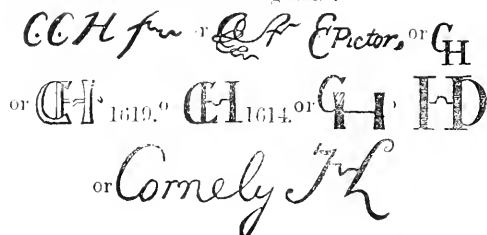 C.C H fec or C f E Pictor, or CH
or CH 1619. o CH 1614. or CH HD
or Cornely H